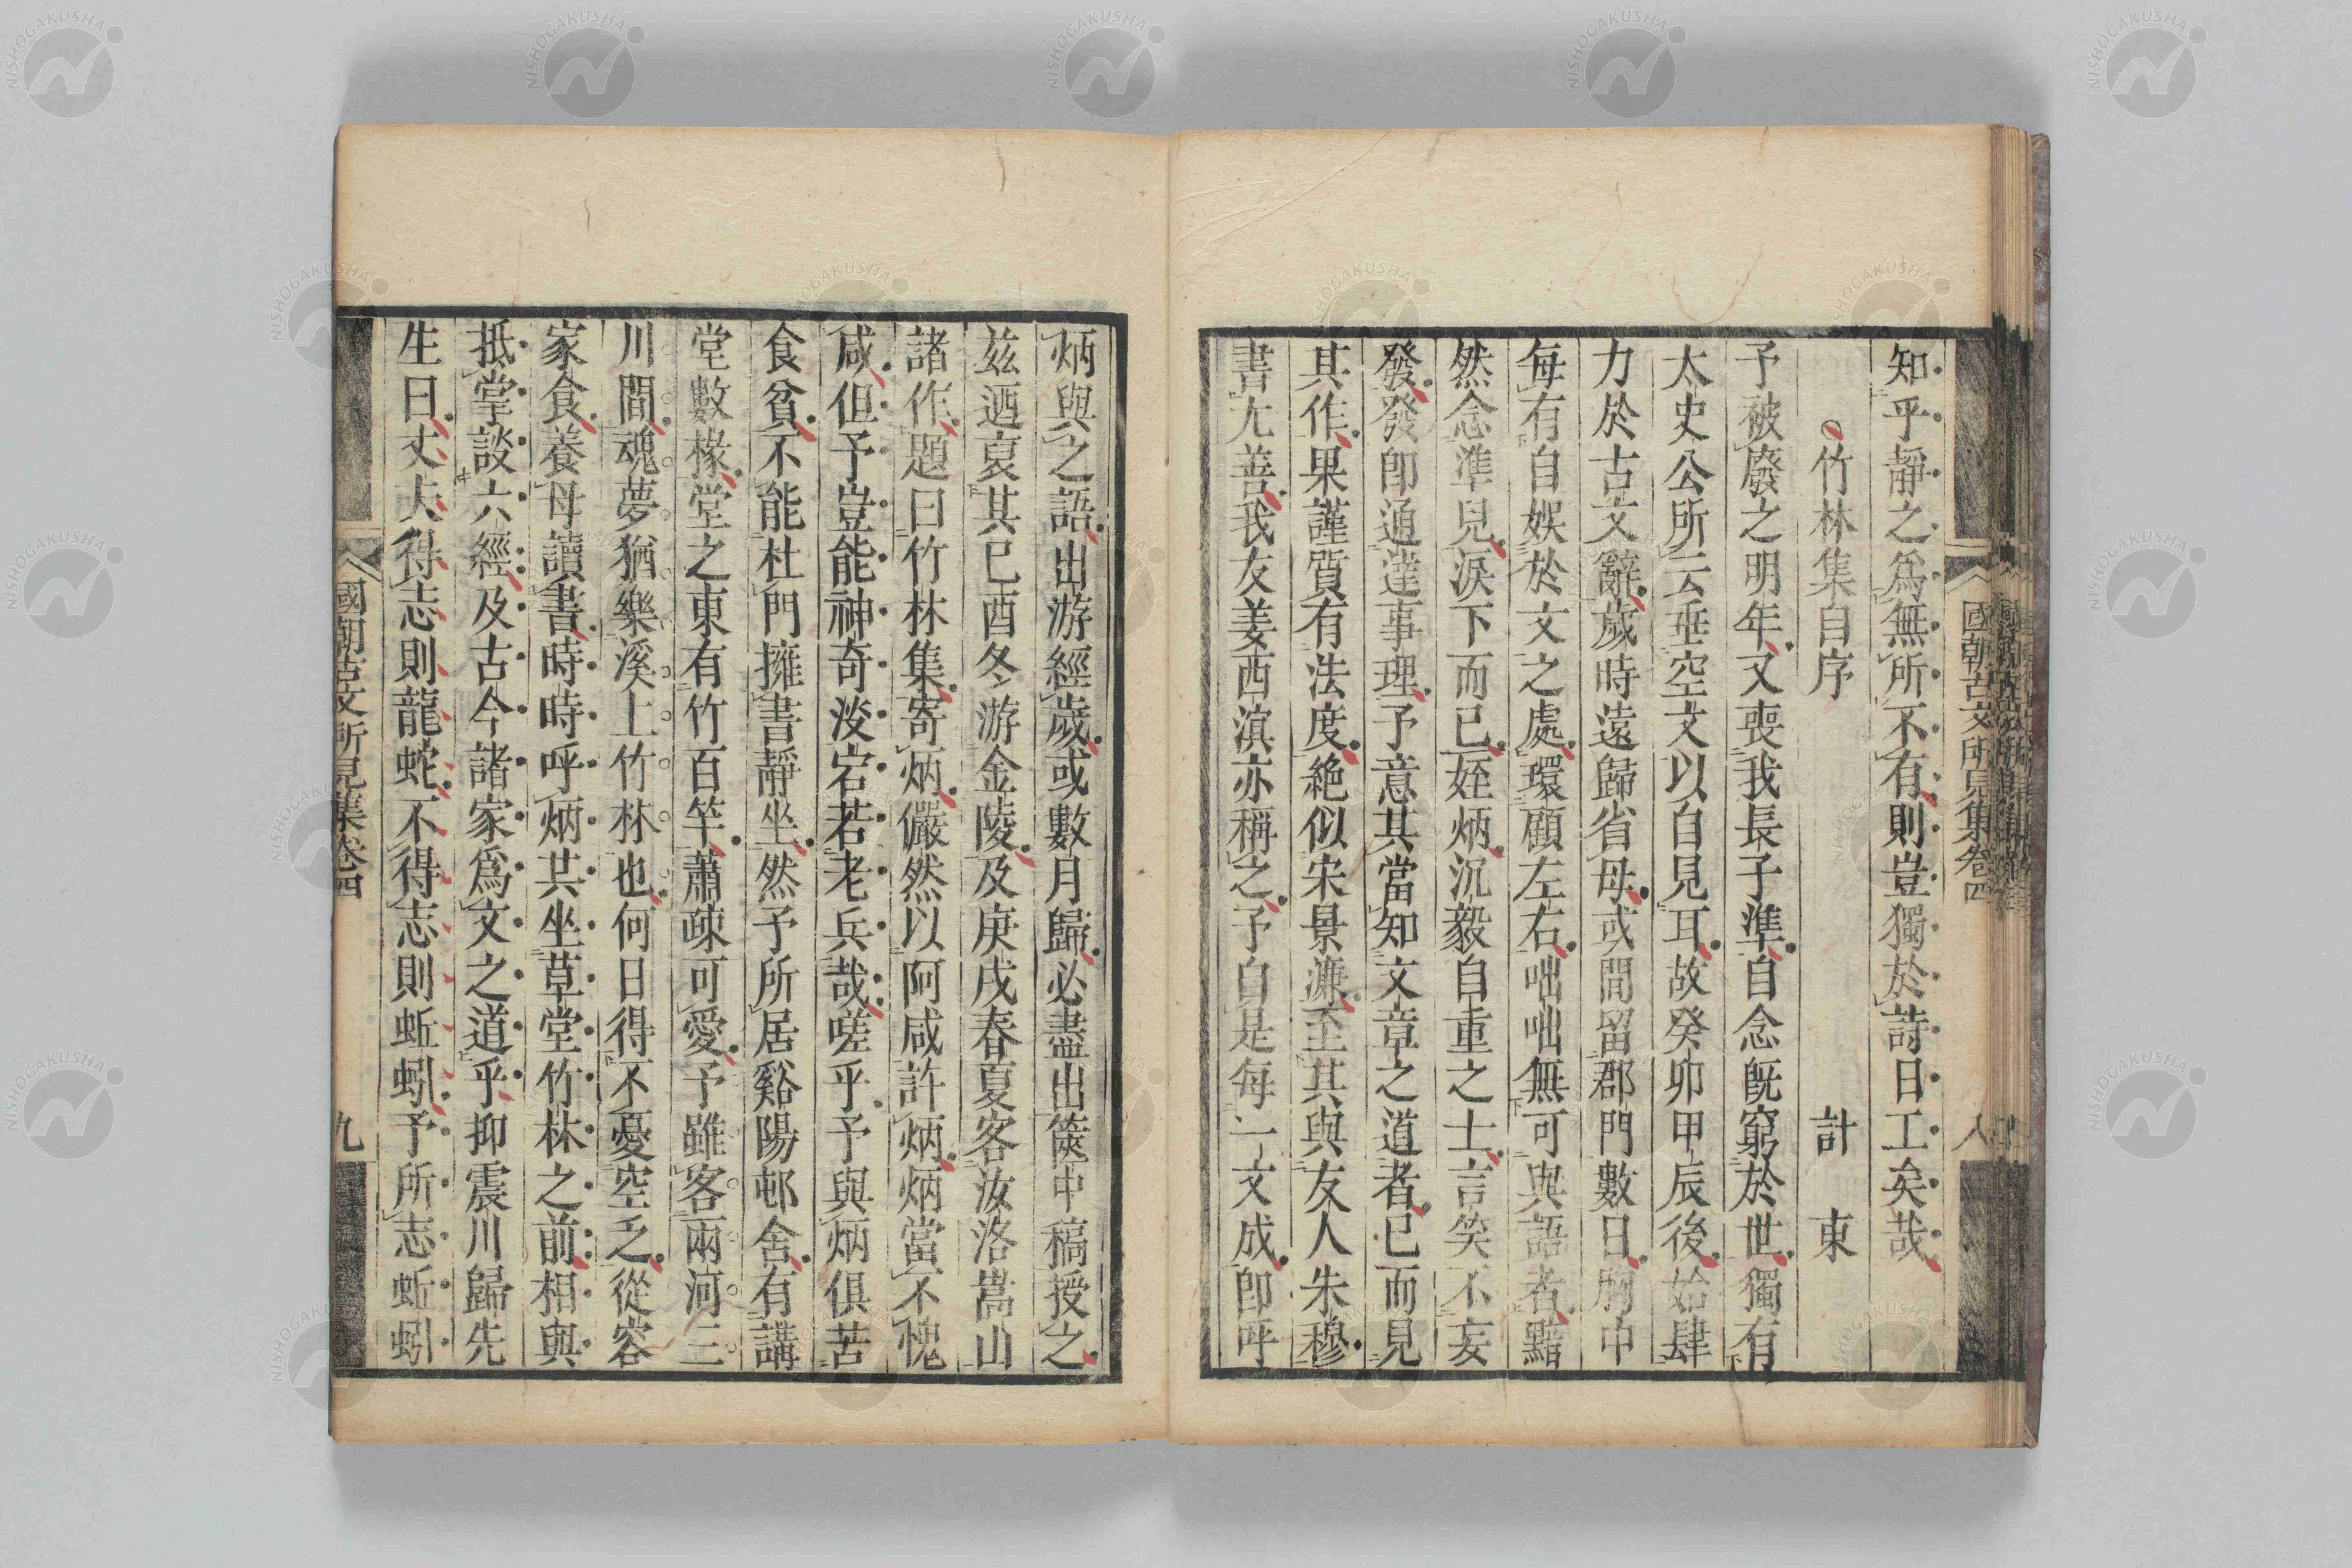 國朝古文所見集卷四
八
知乎靜之爲無所不有則豈獨於詩日工矣哉
○竹林集自序
計東
予被廢之明年又喪我長子準自念旣窮於世獨有
太史公所云垂空文以自見耳故癸卯甲辰後始肆
力於古文辭歲時遠歸省母或間留郡門數日胸中
每有自娛於文之處環顧左右咄咄無可與語者黯
然念準兒淚下而已姪炳沉毅自重之士言笑不妄
發發卽通達事理予意其當知文章之道者已而見
其作果謹質有法度絶似宋景濂至其與友人朱穆
書尤善我友姜西滇亦稱之予自是每一文成卽呼
炳與之語出游經歲或數月歸必盡出篋中稿授之
茲迺裒其已酉冬游金陵及庚戌春夏客汝洛嵩山
諸作題曰竹林集寄炳儼然以阿咸許炳炳當不愧
咸但予豈能神奇淡宕若老兵哉嗟乎予與炳俱苦
食貧不能杜門擁書靜坐然予所居谿陽邨舍有講
堂數椽堂之東有竹百竿蕭疎可愛予雖客兩河三
川間魂夢猶樂溪上竹林也何日得不憂空乏從容
家食養母讀書時時呼炳共坐草堂竹林之前相與
抵掌談六經及古今諸家爲文之道乎抑震川歸先
生曰丈夫得志則龍蛇不得志則蚯蚓予所志蚯蚓
國朝古文所見集卷四
九
NISHOGAKUSHA